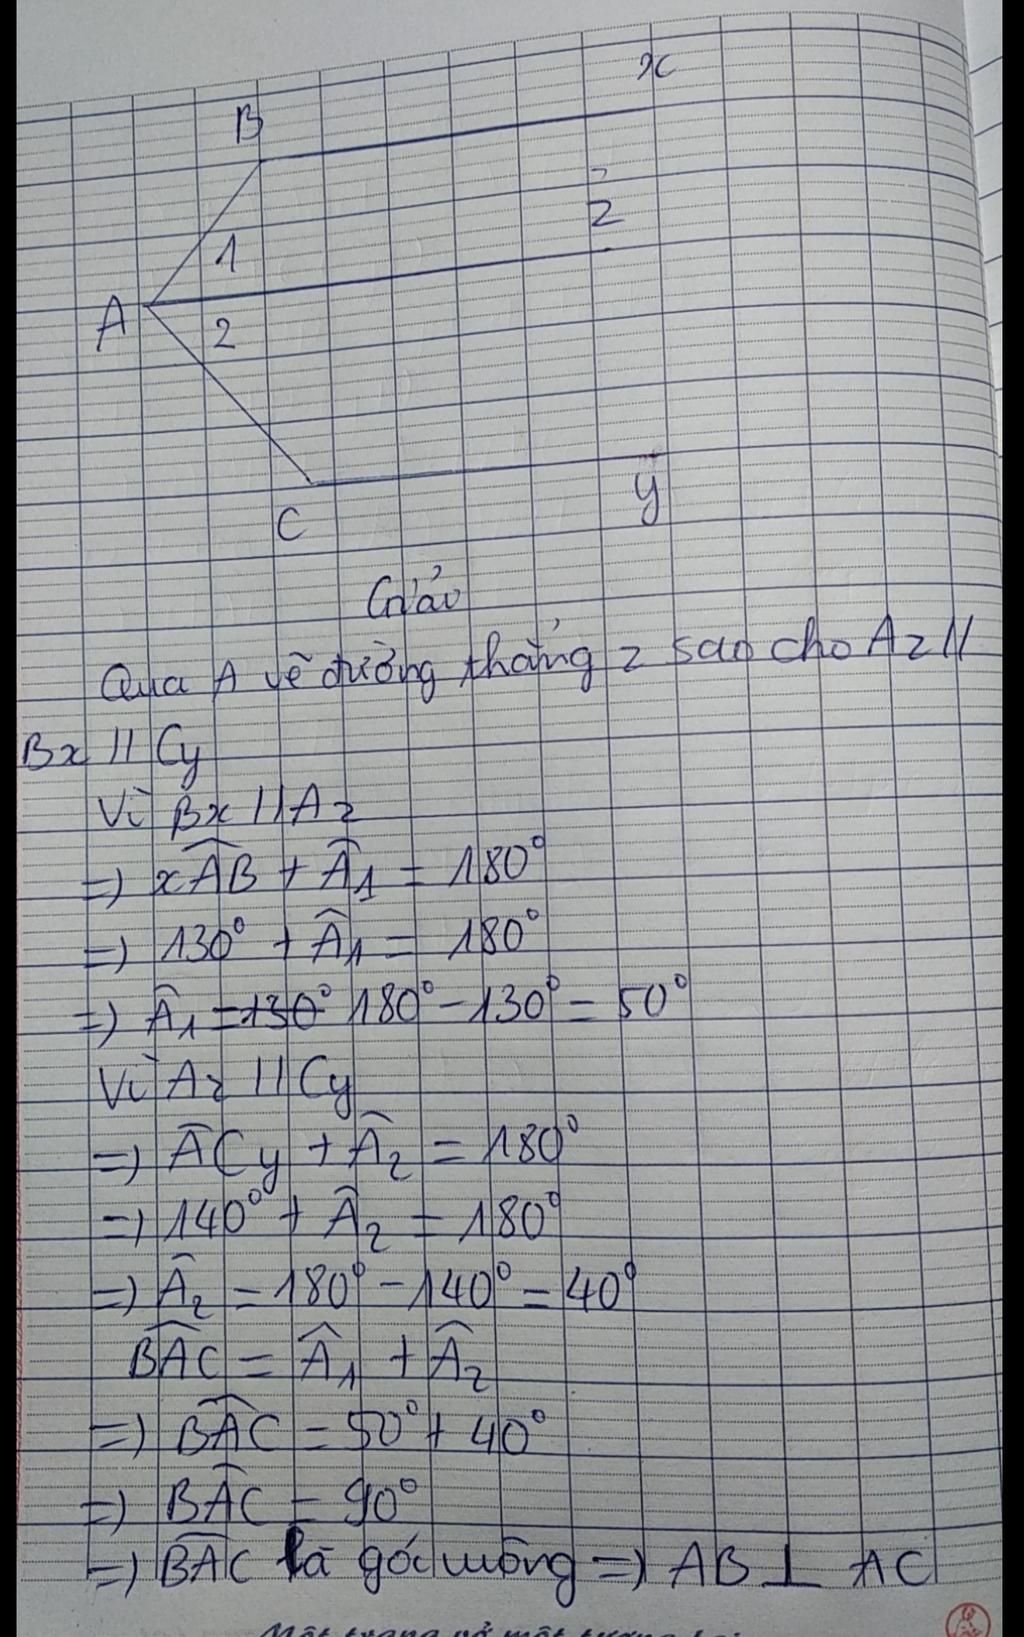 x
B
z
1
A
2
y
C
Giải
Qua A vẽ đường thẳng z sao cho Az //
Bx // Cy
Vì Bx // Az
=> xÂB + Â1 = 180°
=> 130° + Â1 = 180°
=> Â1 = 130° 180° - 130° = 50°
Vì Az // Cy
=> ACy + Â2 = 180°
=> 140° + Â2 = 180°
=> Â2 = 180° - 140° = 40°
BÂC = Â1 + Â2
=> BÂC = 50° + 40°
=> BÂC = 90°
=> BÂC là góc vuông => AB ⊥ AC